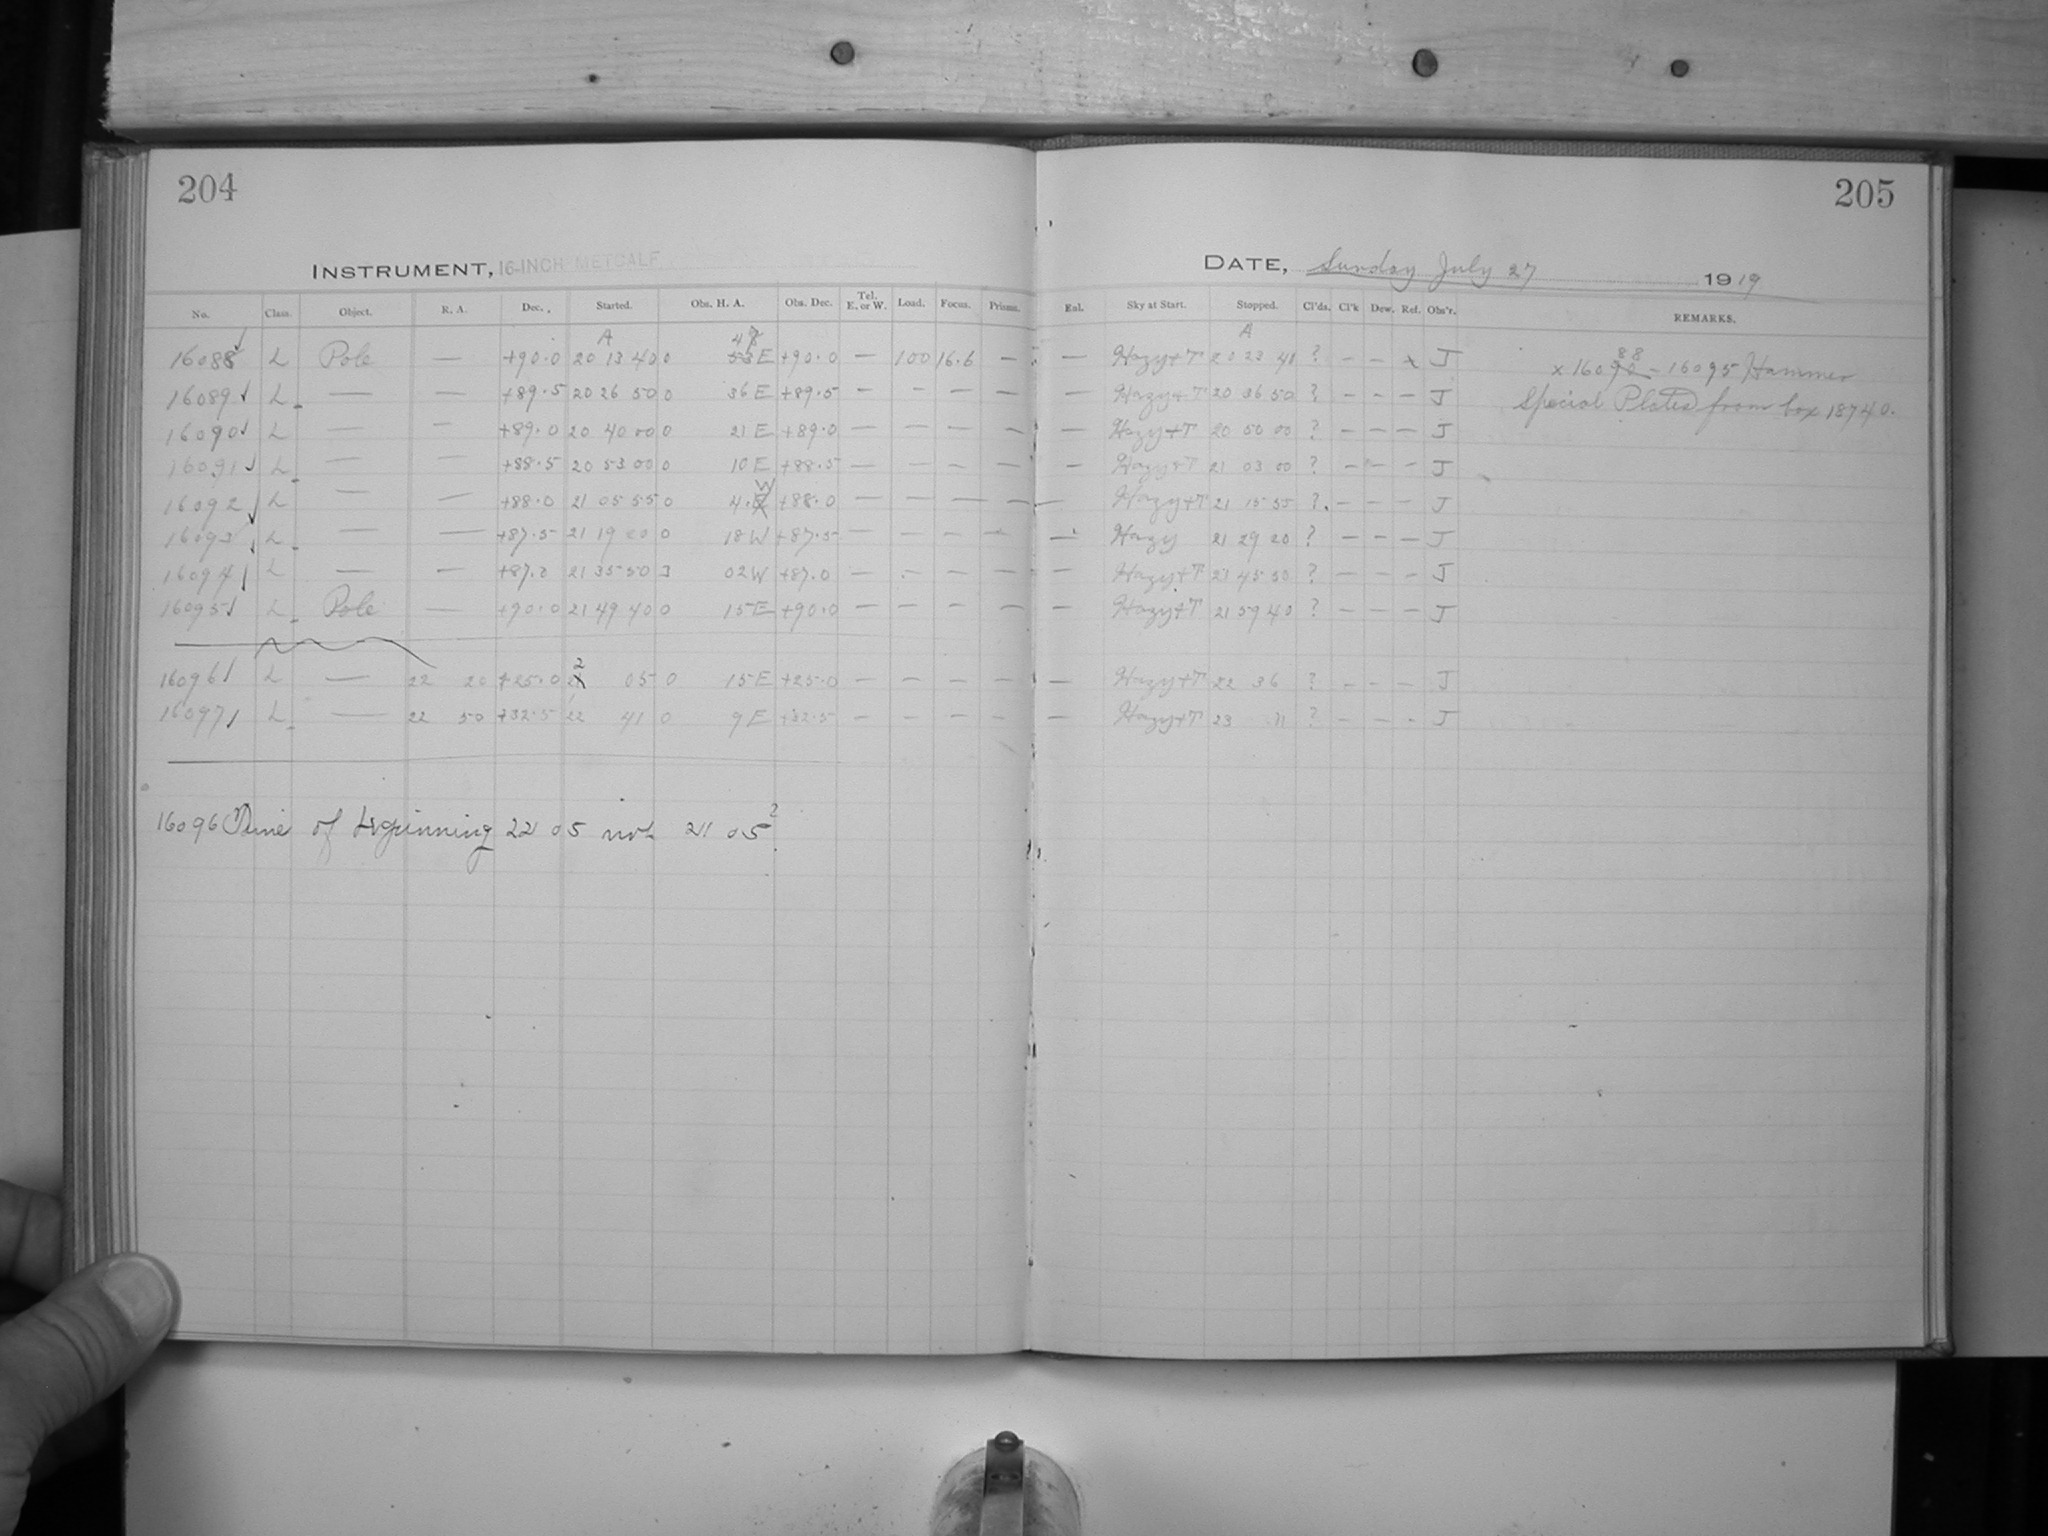 204
205
INSTRUMENT, 16-INCH METCALF
DATE, Sunday July 27 1919
No. Class. Object. R. A. Dec. Started. Obs. H. A. Obs. Dec. Tel. E. or W. Load. Focus. Prisms. Enl. Sky at Start. Stopped. Cl'ds. Cl'k Dew. Ref. Obs'r. REMARKS.
A A
16088 L Pole — +90.0 20 13 40 0 E +90.0 — 100 16.6 — — Hazy+T 20 23 40 ? — — x J x 16088 - 16095 Hammer
16089 L — — +89.5 20 26 50 0 36 E +89.5 — — — — — Hazy+T 20 36 50 ? — — — J Special Plates from box 18740.
16090 L — — +89.0 20 40 00 0 21 E +89.0 — — — — — Hazy+T 20 50 00 ? — — — J
16091 L — — +88.5 20 53 00 0 10 E +88.5 — — — — — Hazy+T 21 03 00 ? — — — J
16092 L — — +88.0 21 05 55 0 4 W +88.0 — — — — — Hazy+T 21 15 55 ? — — — J
16093 L — — +87.5 21 19 20 0 18 W +87.5 — — — — — Hazy 21 29 20 ? — — — J
16094 L — — +87.0 21 35 50 02 W +87.0 — — — — — Hazy+T 21 45 50 ? — — — J
16095 L Pole — +90.0 21 49 40 0 15 E +90.0 — — — — — Hazy+T 21 59 40 ? — — — J
16096 L — 22 20 +25.0 22 05 0 15 E +25.0 — — — — — Hazy+T 22 36 ? — — — J
16097 L — 22 50 +32.5 22 41 0 9 E +32.5 — — — — — Hazy+T 23 11 ? — — — J
16096 Time of beginning 22 05 not 21 05?